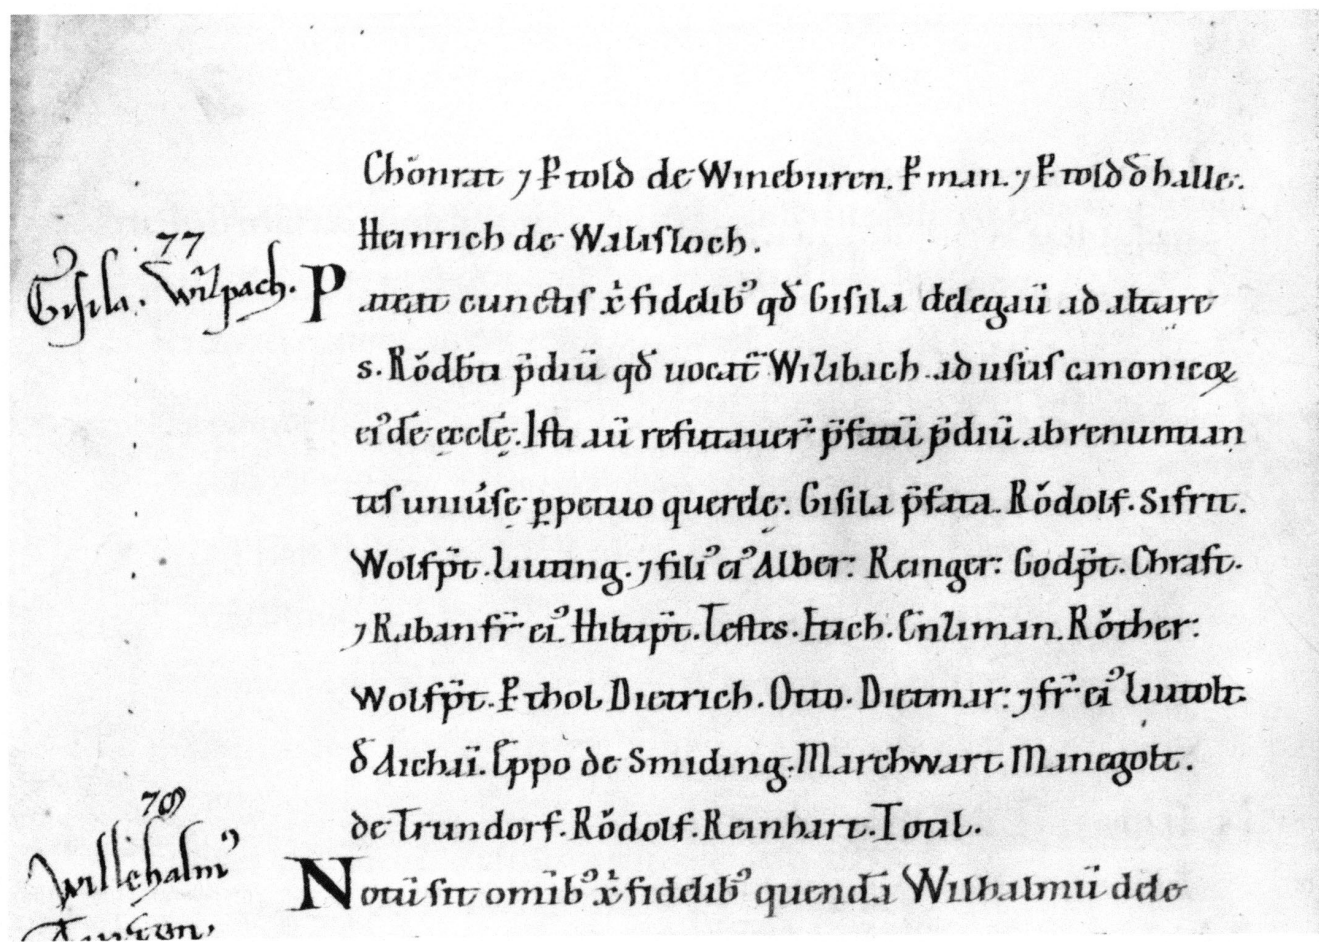 Chǒnrat ⁊ P̱told de Wineburen. P̱man. ⁊ P̱told đ halle.
Heinrich de Walisloch.
77
Gisila. Wilpach. Pateat cunctis x̄ fidelib⁹ qđ Gisila delegauit ad altare
s. Rǒdb̄ti p̄diū qđ uocat̄ Wilibach ad usus canonicoꝝ
ei⁹dē ęccłę. Ista aū refutauer̄ p̄fatū p̄diū abrenuntian
tes uniu͛sę ꝑpetuo querelę. Gisila p̄fata. Rǒdolf. Sifrit.
Wolfp̄t. Liuting. ⁊ fili⁹ ei⁹ Alber. Reinger. Godp̄t. Chraft.
⁊ Raban fr̄ ei⁹. Hiltip̄t. Testes. Itach. Enziman. Rǒther.
Wolfp̄t. P̱thol. Dietrich. Otto. Dietmar. ⁊ fr̄ ei⁹ Liutolt.
đ Aichaū. Eppo de Smiding. Marchwart. Manegolt.
de Trundorf. Rǒdolf. Reinhart. Total.
78
Willehalm⁹ Notū sit omīb⁹ x̄ fidelib⁹ quendā Wilhalmū dele